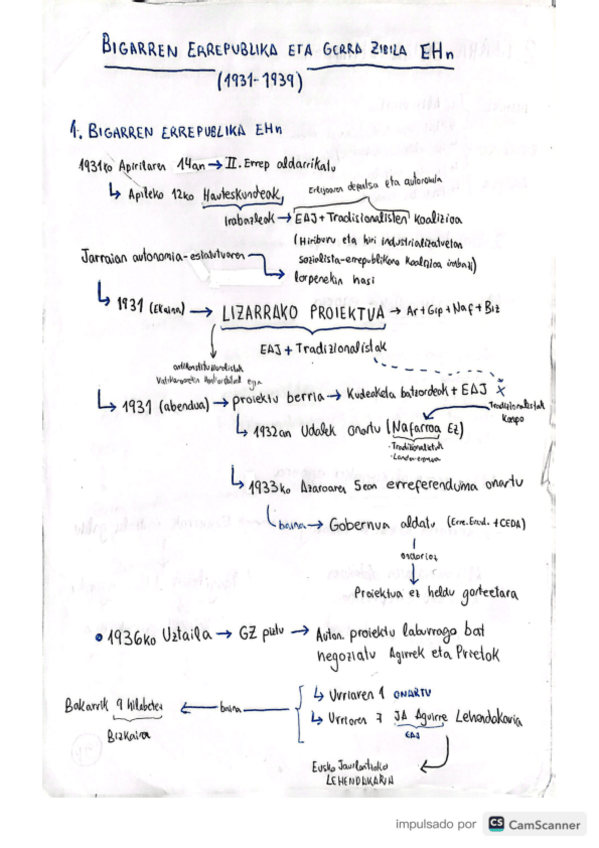 BIGARREN ERREPUBLIKA ETA GERRA ZIBILA EHn
(1931-1939)
1. BIGARREN ERREPUBLIKA EHn
1931ko Apirilaren 14an → II. Errep aldarrikatu
↳ Apileko 12ko Hauteskundeak
Erlijioaren depatsa eta autonomia
Irabazleak → EAJ + Tradizionalisten Koalizioa
(Hiriburu eta hiri industrializatuetan
sozialista-errepublikano koalizioa irabazi)
Jarraian autonomia-estatutuaren
lorpenekin hasi
↳ 1931 (Ekaina) → LIZARRAKO PROIEKTUA → Ar + Gip + Naf + Biz
EAJ + Tradizionalistak
antikonstituzionalistak
↳ 1931 (abendua) → proiektu berria → Kudeaketa batzordeak + EAJ X
Tradizionalistak
kanpo
↳ 1932an Udalek onartu (Nafarroa Ez)
· Tradizionalistak
↳ 1933ko Azaroaren 5ean erreferenduma onartu
baina → Gobernua aldatu (Erre. Erad. + CEDA)
ondorioz
Proiektua ez heldu gorteetara
• 1936ko Uztaila → GZ piztu → Auton. proiektu laburrago bat
negoziatu Agirrek eta Prietok
↳ Urriaren 1 ONARTU
Bakarrik 9 hilabetez ← baina
↳ Urriaren 7 JA Aguirre Lehendakaria
Bizkaian
EAJ
Eusko Jaurlaritzako
LEHENDAKARIA
impulsado por CS CamScanner